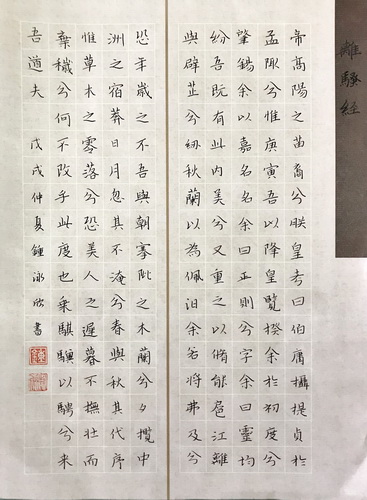 離騷經
帝高陽之苗裔兮朕皇考曰伯庸攝提貞於
孟陬兮惟庚寅吾以降皇覽揆余於初度兮
肇錫余以嘉名名余曰正則兮字余曰靈均
紛吾既有此內美兮又重之以脩能扈江離
與辟芷兮紉秋蘭以為佩汩余若將弗及兮
恐年歲之不吾與朝搴阰之木蘭兮夕攬中
洲之宿莽日月忽其不淹兮春與秋其代序
惟草木之零落兮恐美人之遲暮不撫壯而
棄穢兮何不改乎此度也乘騏驥以騁兮來
吾道夫 戊戌仲夏鍾泳欣書